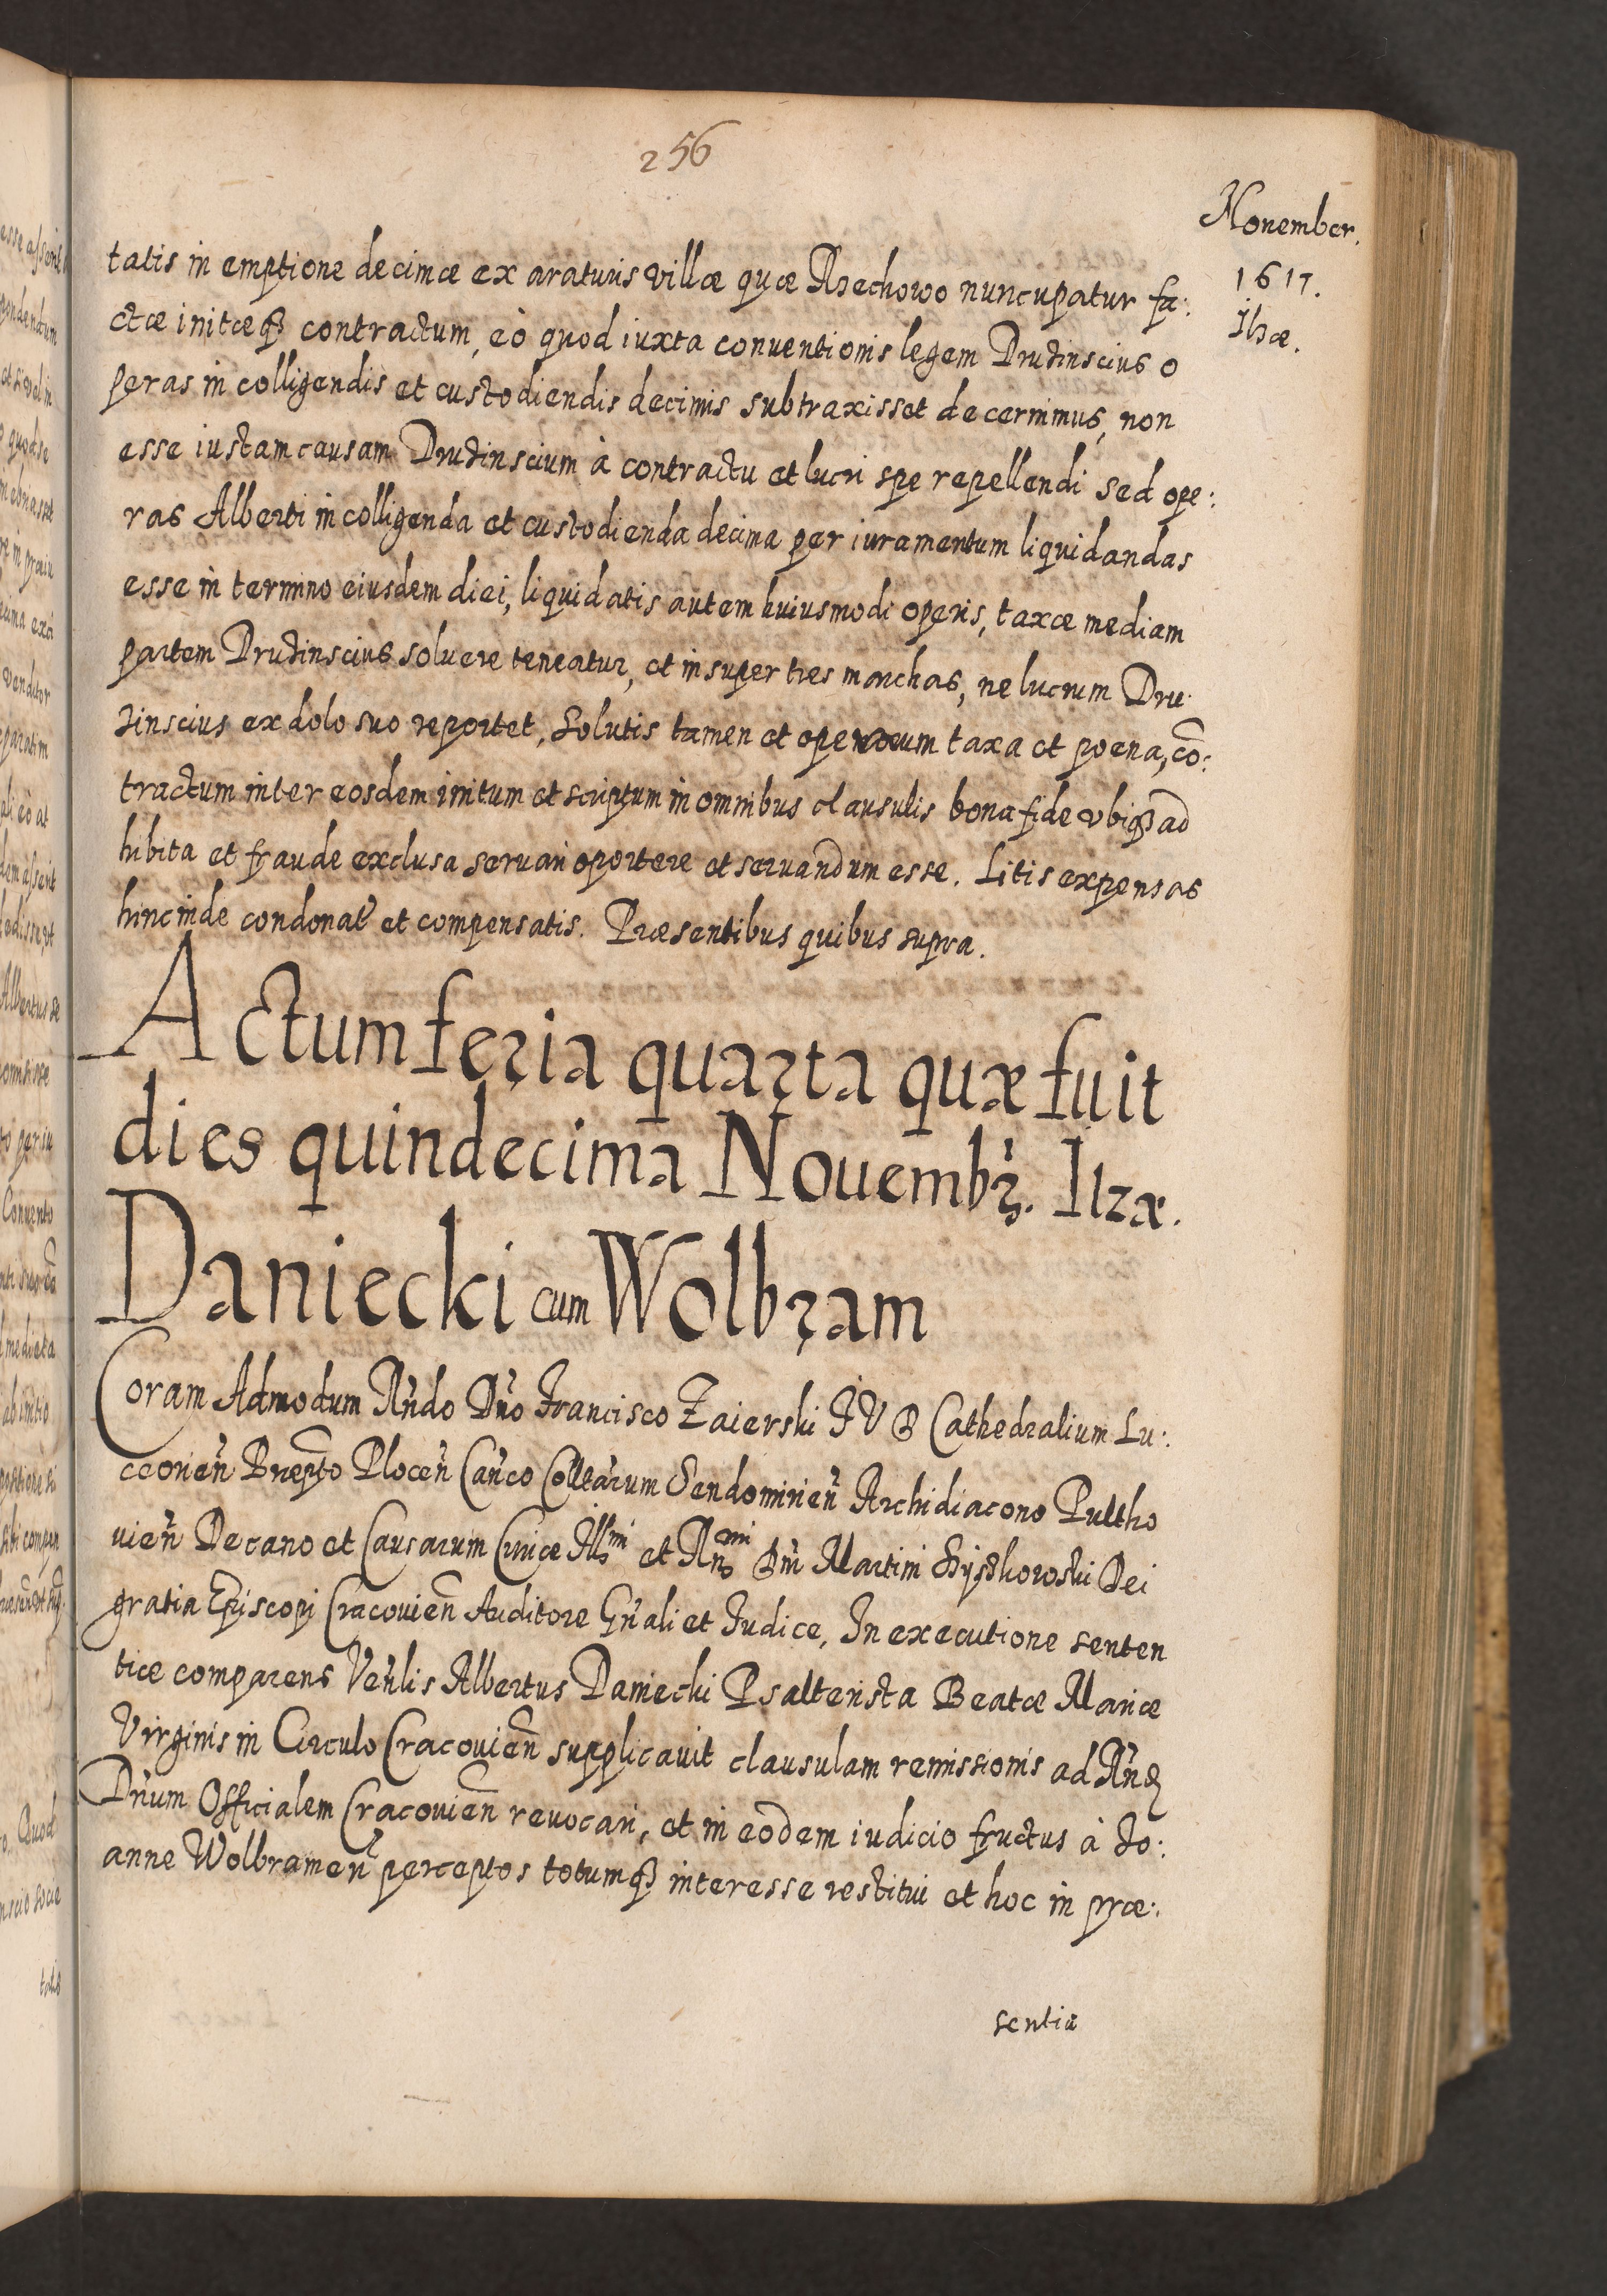 256
Nouember.
1617.
Ilzæ.
tatis in emptione decimæ ex araturis villæ quæ Rzechowo nuncupatur fa:
ctæ initæq3 contractum, eò quod iuxta conuentionis legem Drudinscius o
peras in colligendis et custodiendis decimis subtraxisset decernimus, non
esse iustam causam Drudinscium à contractu et lucri spe repellendi sed ope:
ras Alberti in colligenda et custodienda decima per iuramentum liquidandas
esse in termino eiusdem diei, liquidatis autem huiusmodi operis, taxæ mediam
partem Drudinscius soluere teneatur, et insuper tres marchas, ne lucrum Dru:
dinscius ex dolo suo reportet, Solutis tamen et operarum taxa et poena, cō:
tractum inter eosdem initum et scriptum in omnibus clausulis bona fide vbiq3 ad
hibita et fraude exclusa seruari oportere et seruandum esse. Litis expensas
hinc inde condonat' et compensatis. Præsentibus quibus supra.
Actum feria quarta quæ fuit
dies quindecima Nouembr. Ilzæ.
Daniecki cum Wolbram
Coram Admodum Rn̄do Dn̄o Francisco Zaierski I V D Cathedralium Lu:
ceorien̄ Præpto Plocen̄ Can̄co Colltarum Sendomirien̄ Archidiacono Pultho
uien̄ Decano et Causarum Curiæ Illmi et Rn̄mi Dn̄i Martini Szyszkowski Dei
gratia Episcopi Cracouien̄ Auditore Gn̄ali et Iudice, In executione senten
tiæ comparens Ven̄lis Albertus Daniecki Psalterista Beatæ Mariæ
Virginis in Circulo Cracouien̄ supplicauit clausulam remissionis ad Rn̄d
Dn̄um Officialem Cracouien̄ reuocari, et in eodem iudicio fructus à Io:
anne Wolbramen̄ perceptos totumq3 interesse restitui et hoc in præ:
sentia